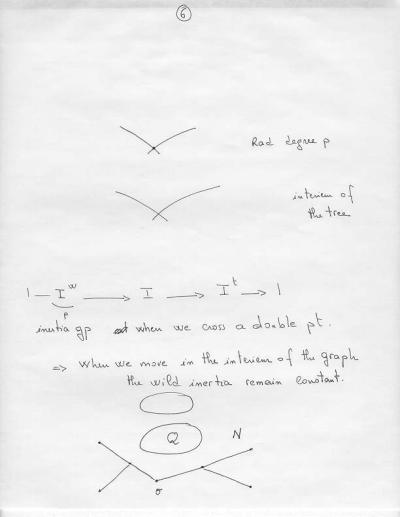 6
Rad degree p
interieur of
the tree
1 — I^w → I → I^t → 1
p
inertia gp at when we cross a double pt.
⇒ When we move in the interieur of the graph
the wild inertia remain constant.
Q N
σ